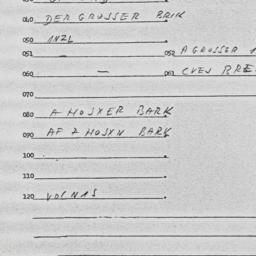 040 DER GROSSER BRIK
050 1NZL
051 — 052 A GROSSER
060 — 061 CVEJ
070
080 A HOSXER BARK
090 AF 2 HOSXN BARK
100
110
120 VOLNAS